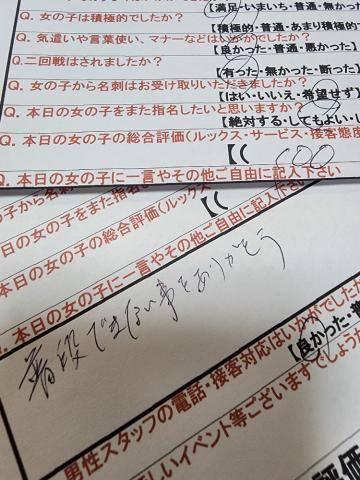 【満足・いまいち・普通・無かった
Q. 女の子は積極的でしたか?
【積極的・普通・あまり積極的
Q. 気遣いや言葉使い、マナーなどはいかがでしたか?
【良かった・普通・悪かった】
Q. 二回戦はされましたか?
【有った・無かった・断った】
Q. 女の子から名刺はお受け取りいただきましたか?
【はい・いいえ・希望せず】
Q. 本日の女の子をまた指名したいと思いますか?
【絶対する・してもよい・し
Q. 本日の女の子の総合評価(ルックス・サービス・接客態度
【( 600
Q. 本日の女の子に一言やその他ご自由に記入下さい
の子から名刺
本日の女の子をまた指
本日の女の子の総合評価(ルックス
【(
本日の女の子に一言やその他ご自由に記入下さい
普段できない事をありがとう
男性スタッフの電話・接客対応はいかがでしたか
【良かった・普
しいイベント等ございますでしょう
評価